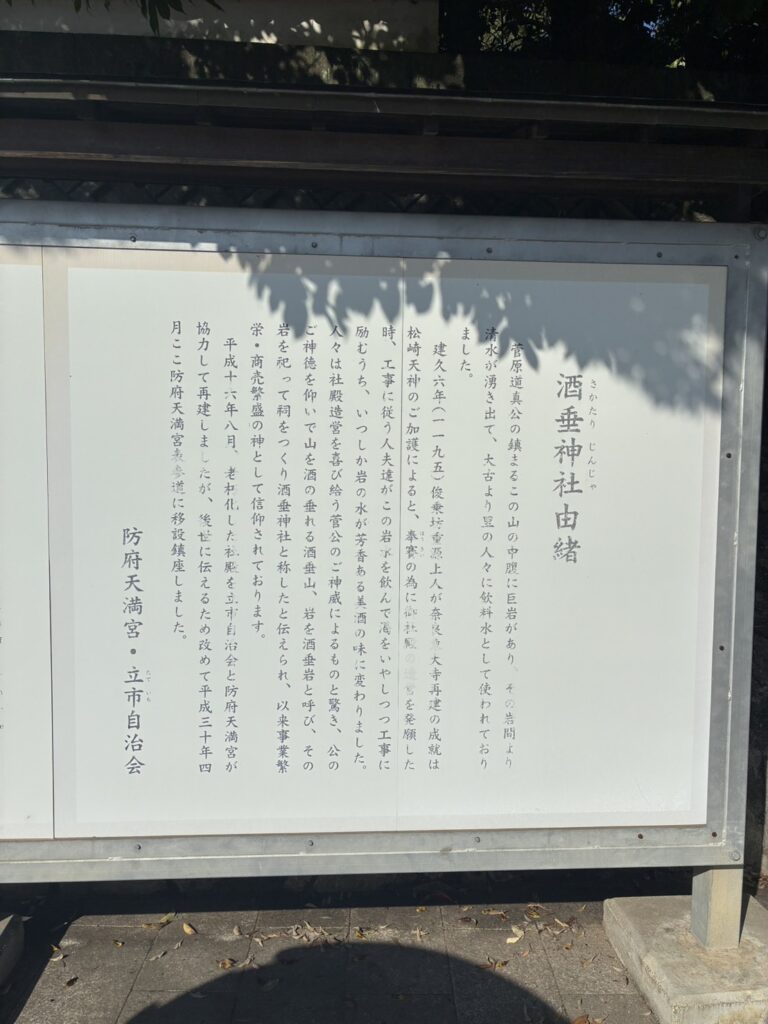 酒垂神社由緒
さかたり じんじゃ
菅原道真公の鎮まるこの山の中腹に巨岩があり、その岩間より
清水が湧き出て、太古より里の人々に飲料水として使われており
ました。
建久六年（一一九五）俊乗坊重源上人が奈良東大寺再建の成就は
松崎天神のご加護によると、奉賽の為に御社殿の造営を発願した
ほうさい
時、工事に従う人夫達がこの岩水を飲んで渇をいやしつつ工事に
励むうち、いつしか岩の水が芳香ある美酒の味に変わりました。
人々は社殿造営を喜び給う菅公のご神威によるものと驚き、公の
ご神徳を仰いで山を酒の垂れる酒垂山、岩を酒垂岩と呼び、その
岩を祀って祠をつくり酒垂神社と称したと伝えられ、以来事業繁
栄・商売繁盛の神として信仰されております。
平成十六年八月、老朽化した社殿を立市自治会と防府天満宮が
協力して再建しましたが、後世に伝えるため改めて平成三十年四
月ここ防府天満宮表参道に移設鎮座しました。
防府天満宮・立市自治会
たていち